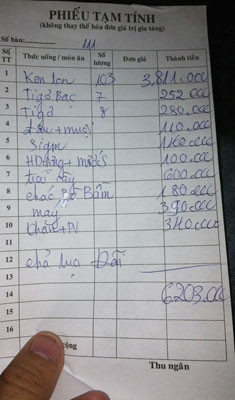 PHIẾU TẠM TÍNH
(không thay thế hóa đơn giá trị gia tăng)
Số bàn: 111
Số TT Thức uống / món ăn Số lượng Đơn giá Thành tiền
1 Ken lon 103 3,811.000
2 Tigơ Bạc 7 252.000
3 Tigơ 8 280.000
4 + muối 110.000
5 110.000
6 HDương + 100.000
7 trái cây 600.000
8 Bò Bằm 180.000
9 máy 390.000
10 Khăn + PV 340.000
11
12 chả lụa
13
14 6203.000
15
16
cộng
Thu ngân